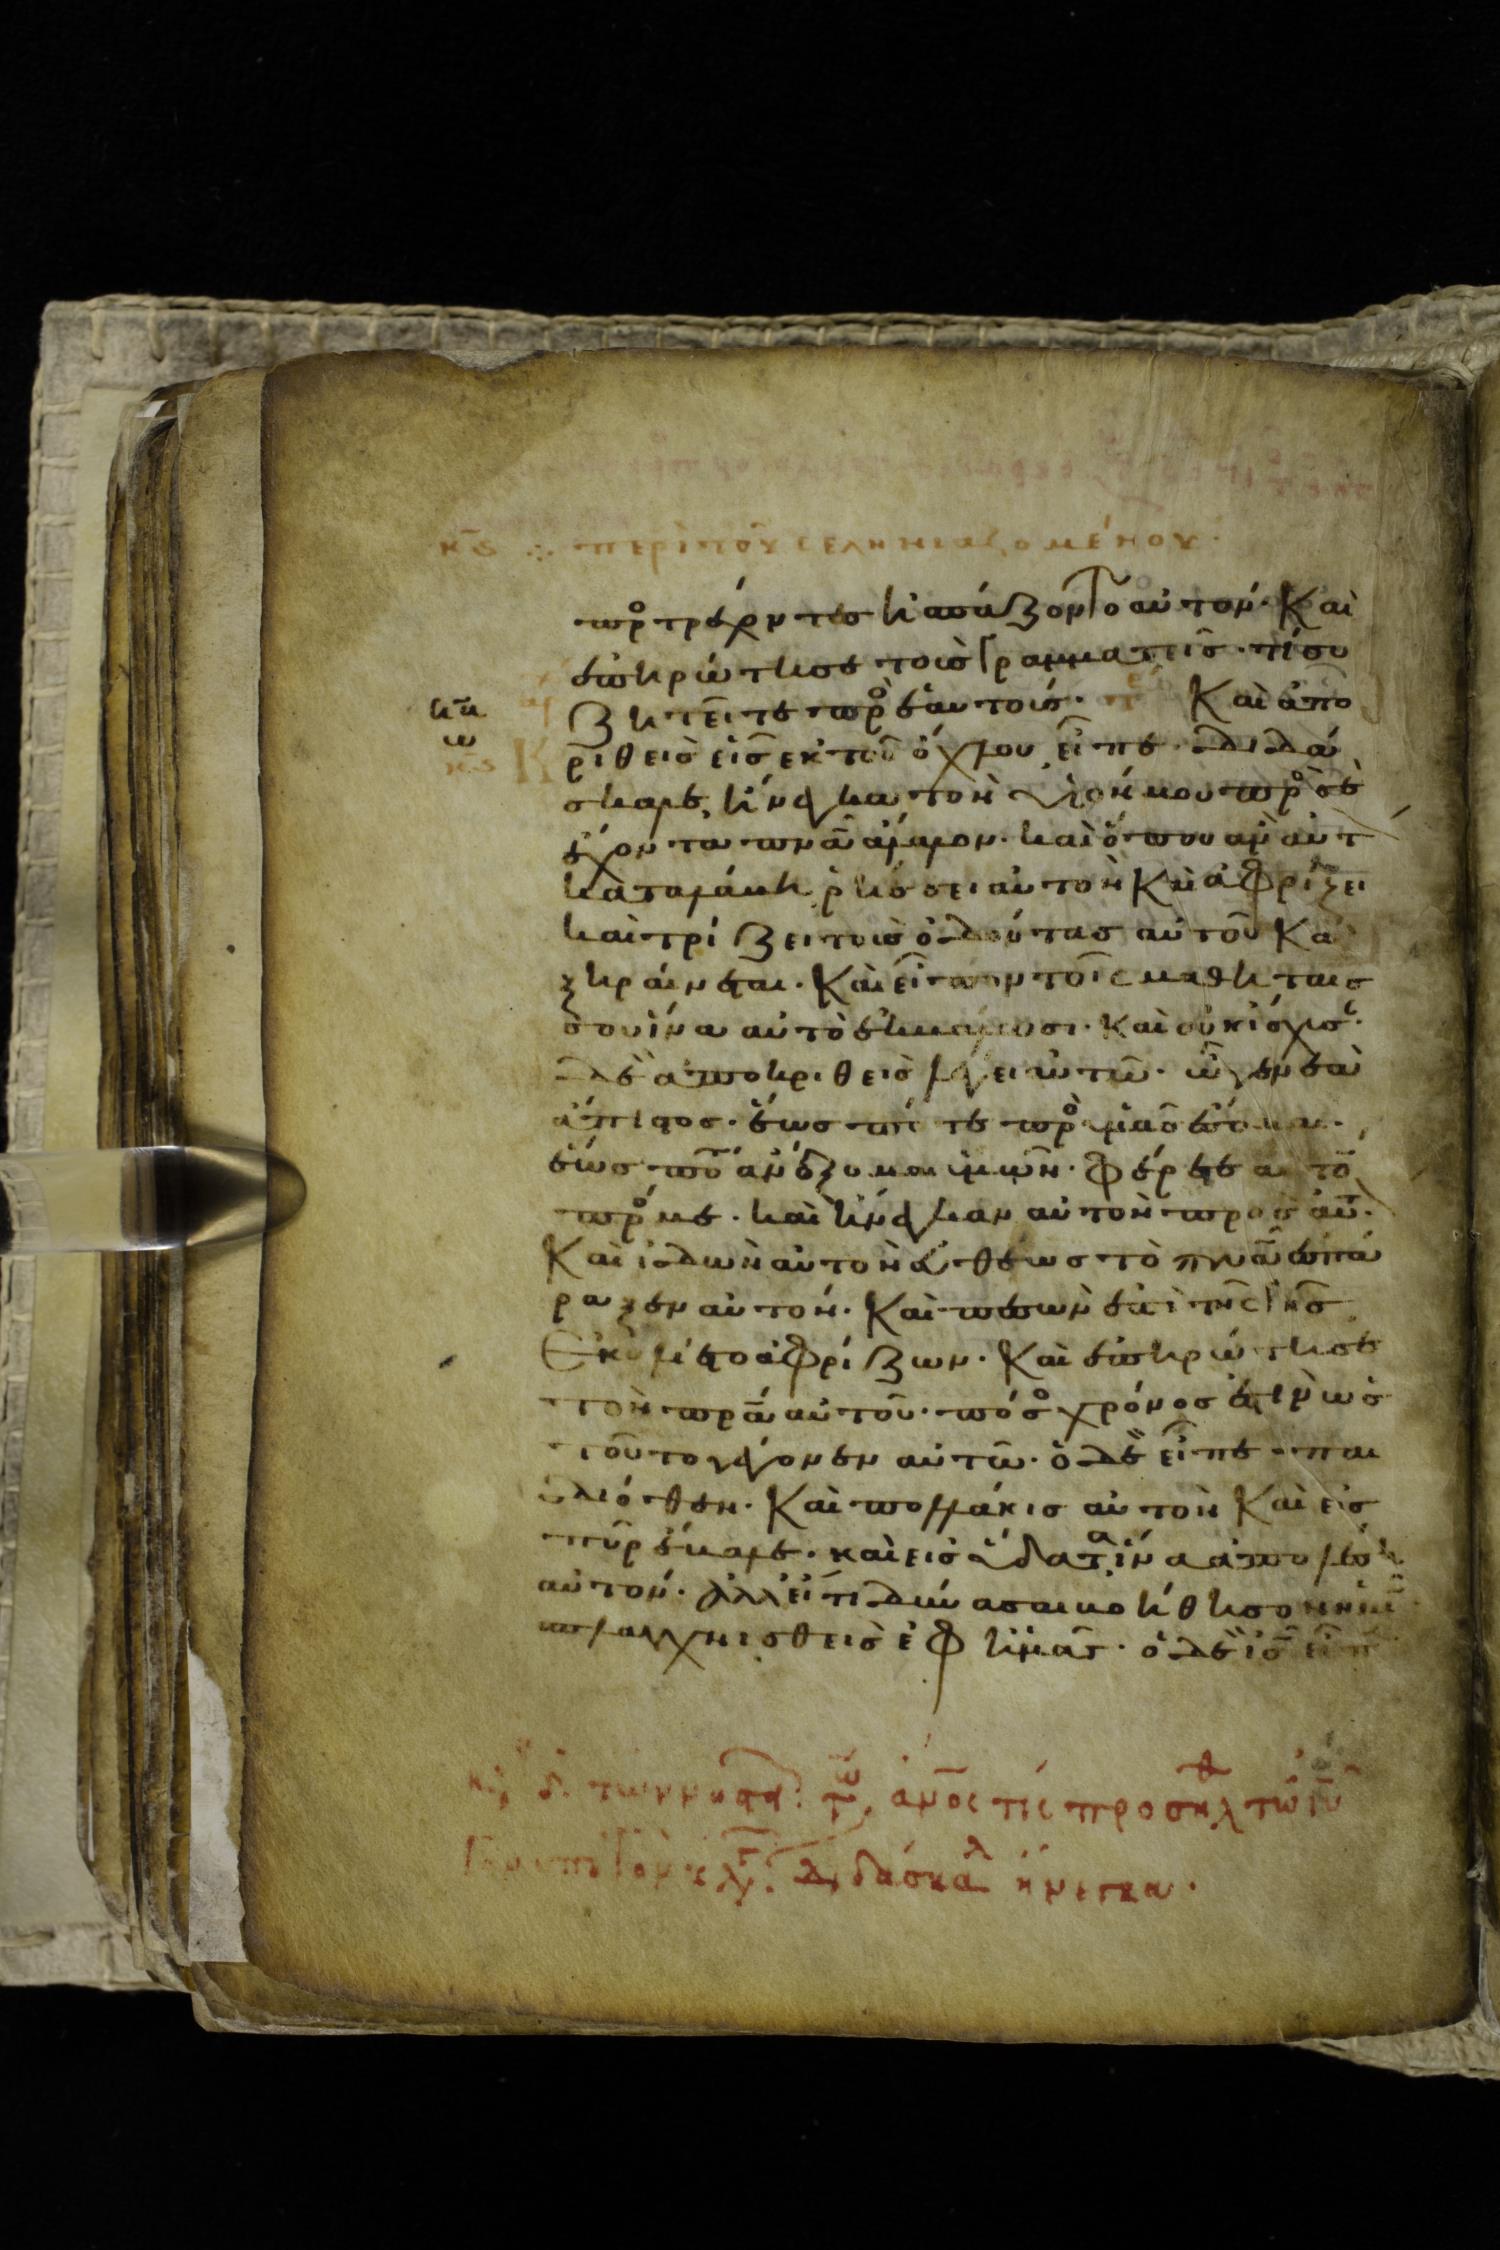 κϛ ∴ περὶ τοῦ σεληνιαζομένου·
πρ̊οτρέχοντες ἠσπάζοντο αὐτόν· Καὶ
ἐπηρώτησε τοὺς γραμματεῖς· τί συ
ζητεῖτε πρὸς ἑαυτούς· Καὶ ἀπο
κριθεὶς εἷς ἐκ τοῦ ὄχλου εἶπε· διδά
σκαλε, ἤνεγκα τὸν υἱόν μου πρὸς σὲ
ἔχοντα πνα̅ ἄλαλον· καὶ ὅπου ἂν αὐτ
καταλάβη ῥήσσει αὐτὸν Καὶ ἀφρίζει
καὶ τρίζει τοὺς ὀδόντας αὐτοῦ Καὶ
ξηραίνεται· Καὶ εἶπον τοῖς μαθηταῖς
σου ἵνα αὐτὸ ἐκβάλωσι· Καὶ οὐκ ἴσχυσ·
δὲ ἀποκριθεὶς λέγει αὐτῶ· ὦ γενεὰ
ἄπιστος· ἕως πότε πρὸς ὑμᾶς ἔσομαι·
ἕως πότε ἀνέξομαι ὑμῶν· φέρετε αὐτὸ
πρός με· καὶ ἤνεγκαν αὐτὸν πρὸς αὐτ·
Καὶ ἰδὼν αὐτὸν εὐθέως τὸ πνα̅ ἐσπά
ραξεν αὐτόν· Καὶ πεσὼν ἐπὶ τῆς γῆς
ἐκυλίετο ἀφρίζων· Καὶ ἐπηρώτησε
τὸν πρα̅ αὐτοῦ· πόσος χρόνος ἐστὶν ὡς
τοῦτο γέγονεν αὐτῶ· ὁ δὲ εἶπε· παι
διόθεν· Καὶ πολλάκις αὐτὸν Καὶ εἰς
πῦρ ἔβαλε· καὶ εἰς ὕδατα ἵνα ἀπολέση
αὐτόν· ἀλλ εἴ τι δύνασαι βοήθησον ἡμῖν
σπλαγχνισθεὶς ἐφ ἡμᾶς· ὁ δὲ ι̅ς̅ εἶπ
τῶν νηστ ἀνο̅ς τις προσῆλθ τῶ ι̅υ̅
διδάσκαλ ἤνεγκα·